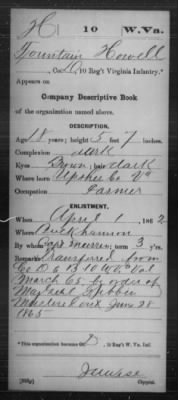 H 10 W.Va.
Fountain Howell
Co. D, 10 Reg't Virginia Infantry.*
Appears on
Company Descriptive Book
of the organization named above.
DESCRIPTION.
Age 18 years; height 5 feet 7 inches.
Complexion dark
Eyes Brown; hair dark
Where born Upshur Co Va
Occupation Farmer
ENLISTMENT.
When April 1, 1862
Where Buckhannon
By whom Capt Morris; term 3 y'rs.
Remarks: Transfered from
Co D to B 10 W Va Vol
March 65 by order of
Maj Genl Gibbon
Mustered out June 28
1865
*This organization became Co. D, 10 Reg't W. Va. Inf.
Copyist.